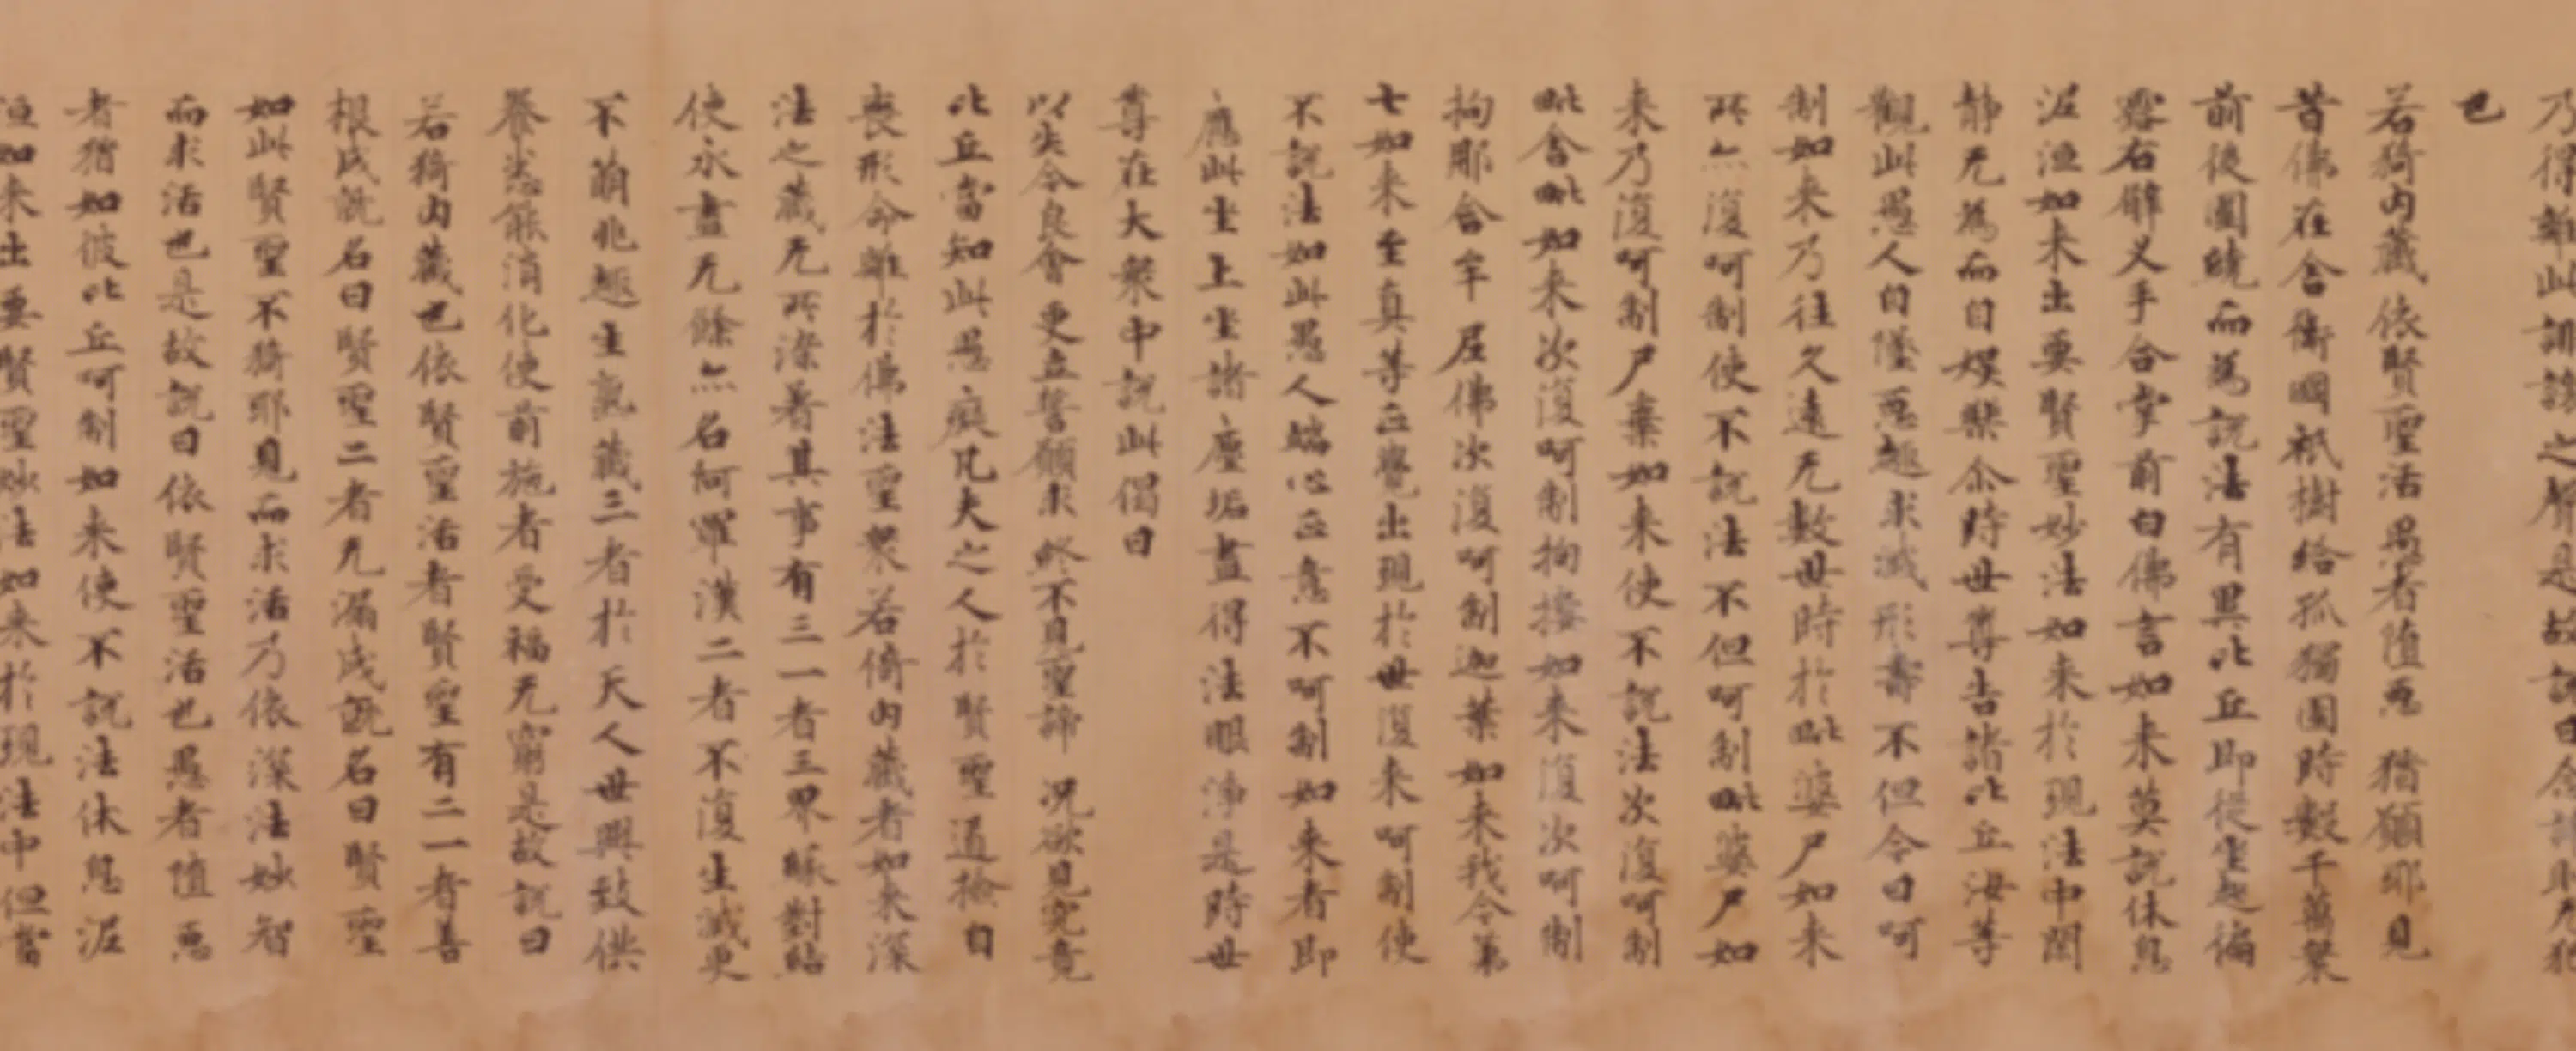 乃得離此誹謗之 是故說曰
也
若猗內藏 依賢聖活 愚者墮惡 猶願邪見
昔佛在舍衛國祇樹給孤獨園時數千萬眾
前後圍繞而為說法有異比丘即從坐起偏
露右臂叉手合掌前白佛言如來莫說休息
泥洹如來出要賢聖妙法如來於現法中閑
靜无為而自娛樂尒時世尊告諸比丘汝等
觀此愚人自墮惡趣求滅形壽不但今日呵
制如來乃往久遠无數世時於毗婆尸如來
所亦復呵制使不說法不但呵制毗婆尸如
來乃復呵制尸棄如來使不說法次復呵制
毗舍毗如來次復呵制拘樓如來復次呵制
拘那含牟尼佛次復呵制迦葉如來我今第
七如來至真等正覺出現於世復來呵制使
不說法如此愚人端心正意不呵制如來者即
應此坐上坐諸塵垢盡得法眼淨是時世
尊在大眾中說此偈曰
以失今良會 更立誓願求 終不見聖諦 況欲見究竟
比丘當知此愚癡凡夫之人於賢聖道撿自
喪形命離於佛法聖眾若倚內藏者如來深
法之藏无所染著其事有三一者三界縣對結
使永盡无餘亦名阿羅漢二者不復生滅更
不萌兆趣生熟藏三者於天人世興致供
養悉能消化使前施者受福无窮是故說曰
若猗內藏也依賢聖活者賢聖有二一者善
根成就名曰賢聖二者无漏成就名曰賢聖
如此賢聖不猗邪見而求活乃依深法妙智
而求活也是故說曰依賢聖活也愚者墮惡
者猶如彼比丘呵制如來使不說法休息泥
洹如來出要賢聖妙法如來於現法中但當